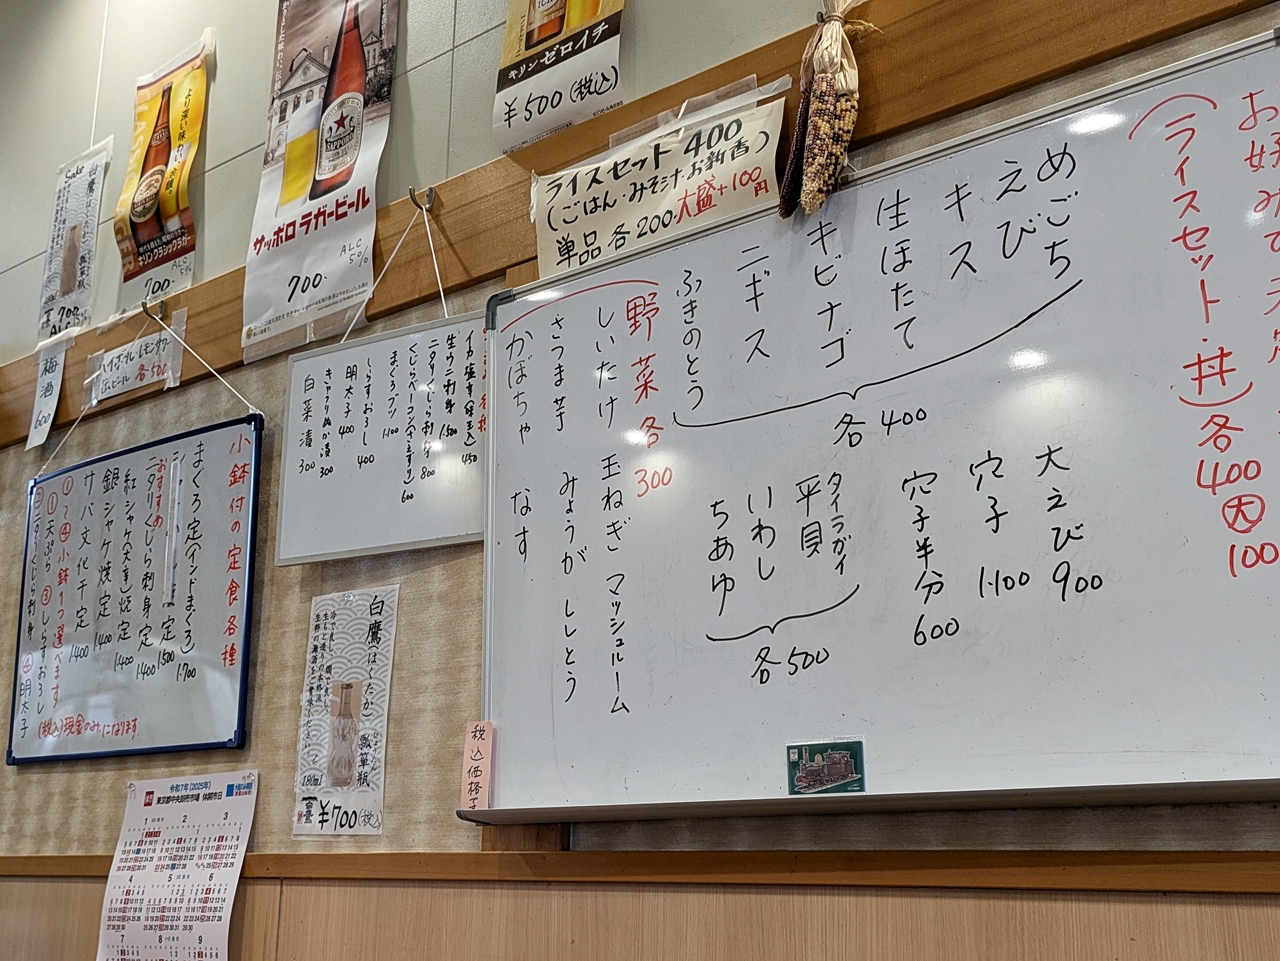 お好みで天
(ライスセット・丼)各
400 大
100
めごち
えび
キス
生ほたて
キビナゴ
ニギス
ふきのとう
各400
大えび 900
穴子 1100
穴子半分 600
タイラガイ
平貝
いわし
ちあゆ
各500
野菜各300
しいたけ 玉ねぎ マッシュルーム
さつま芋 みょうが ししとう
かぼちゃ なす
税込価格
ライスセット 400
(ごはん・みそ汁・お新香)
単品各200 大盛+100円
キリンゼロイチ
¥500(税込)
サッポロラガービール
SAPPORO
700
ALC 5%
より深い味わい
キリンクラシックラガー
700
ALC 5%
Sake
白鷹
700
ALC
梅酒 600
ハイボール・レモンサワー
缶ビール 各500
生ウニ刺身 1500
ニタリくじら刺身 800
くじらベーコン 600
まぐろブツ 1100
しらすおろし 400
明太子 400
きゅうりぬか漬 300
白菜漬 300
小鉢付の定食各種
まぐろ定(インドまぐろ) 1700
定 1500
おすすめ
ニタリくじら刺身定 1400
紅シャケ(大辛)焼定 1400
銀シャケ焼定 1400
サバ文化干定 1400
①〜④小鉢1つ選べます
①天ぷら ③しらすおろし
②ニタリくじら刺身 ④明太子
(税込)現金のみになります
白鷹(はくたか)瓢箪瓶
冷で良し、燗で良し、
180ml
¥700(税込)
令和7年(2025年)
東京都中央卸売市場 休開市日
1 2 3
4 5 6
7 8 9